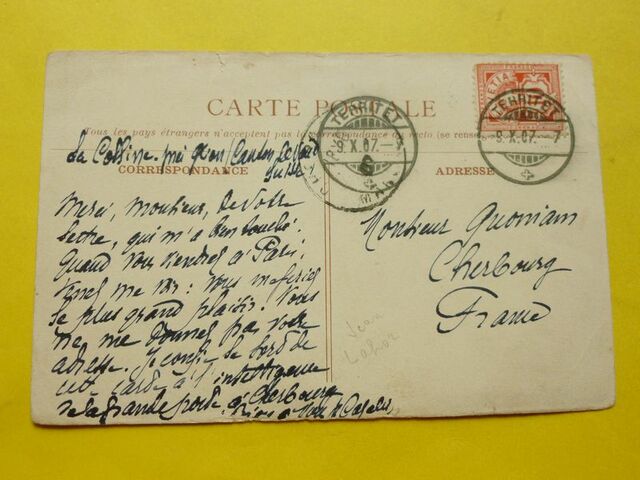 CARTE POSTALE
Tous les pays étrangers n'acceptent pas la correspondance au recto (se rense
La Colline. près (Canton de Vaud
Suisse)
CORRESPONDANCE
ADRESSE
TERRITET
9.X.07.
TERRITET
9.X.07.-7
Merci, Monsieur, de votre
lettre, qui m'a bien touché.
Quand vous viendrez à Paris,
venez me voir : vous me feriez
le plus grand plaisir. Vous
ne me donnez pas votre
adresse. Je confie le bord de
cette carte à l'intelligence
de la grande poste, à Cherbourg
Monsieur Quoniam
Cherbourg
France
Jean
Lahor